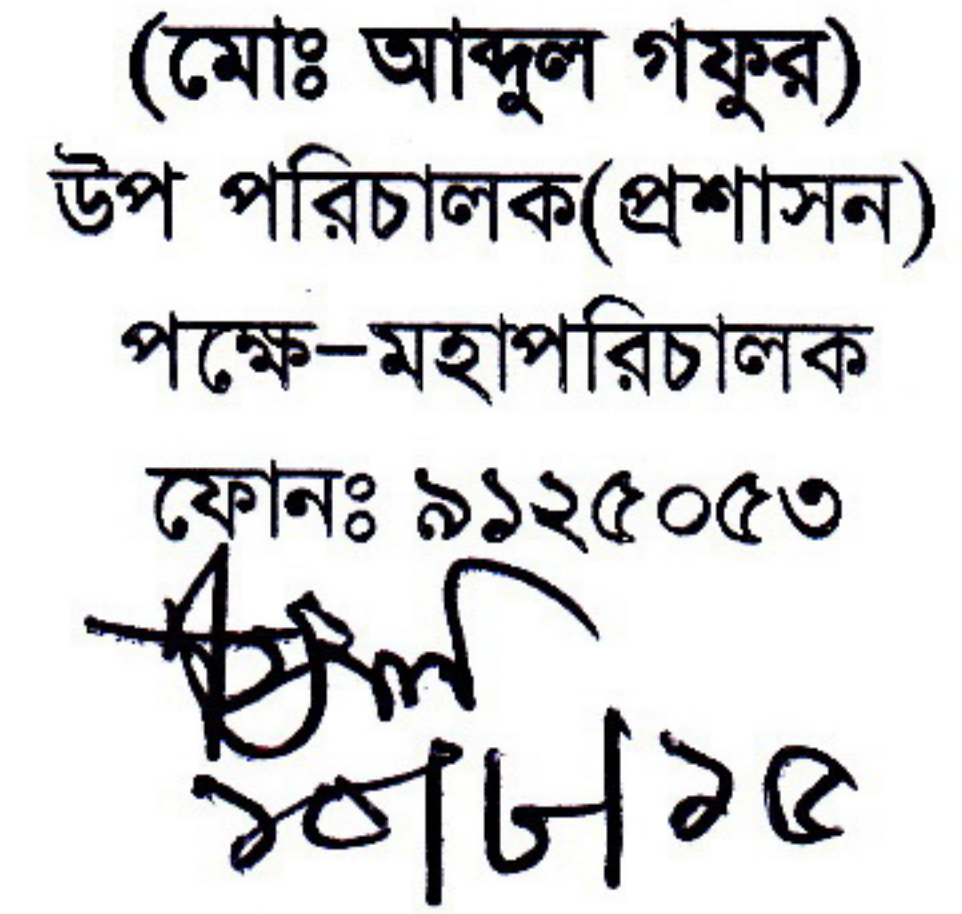 (মোঃ আব্দুল গফুর)
উপ পরিচালক(প্রশাসন)
পক্ষে-মহাপরিচালক
ফোনঃ ৯১২৫০৫৩
১০|৮|১৫